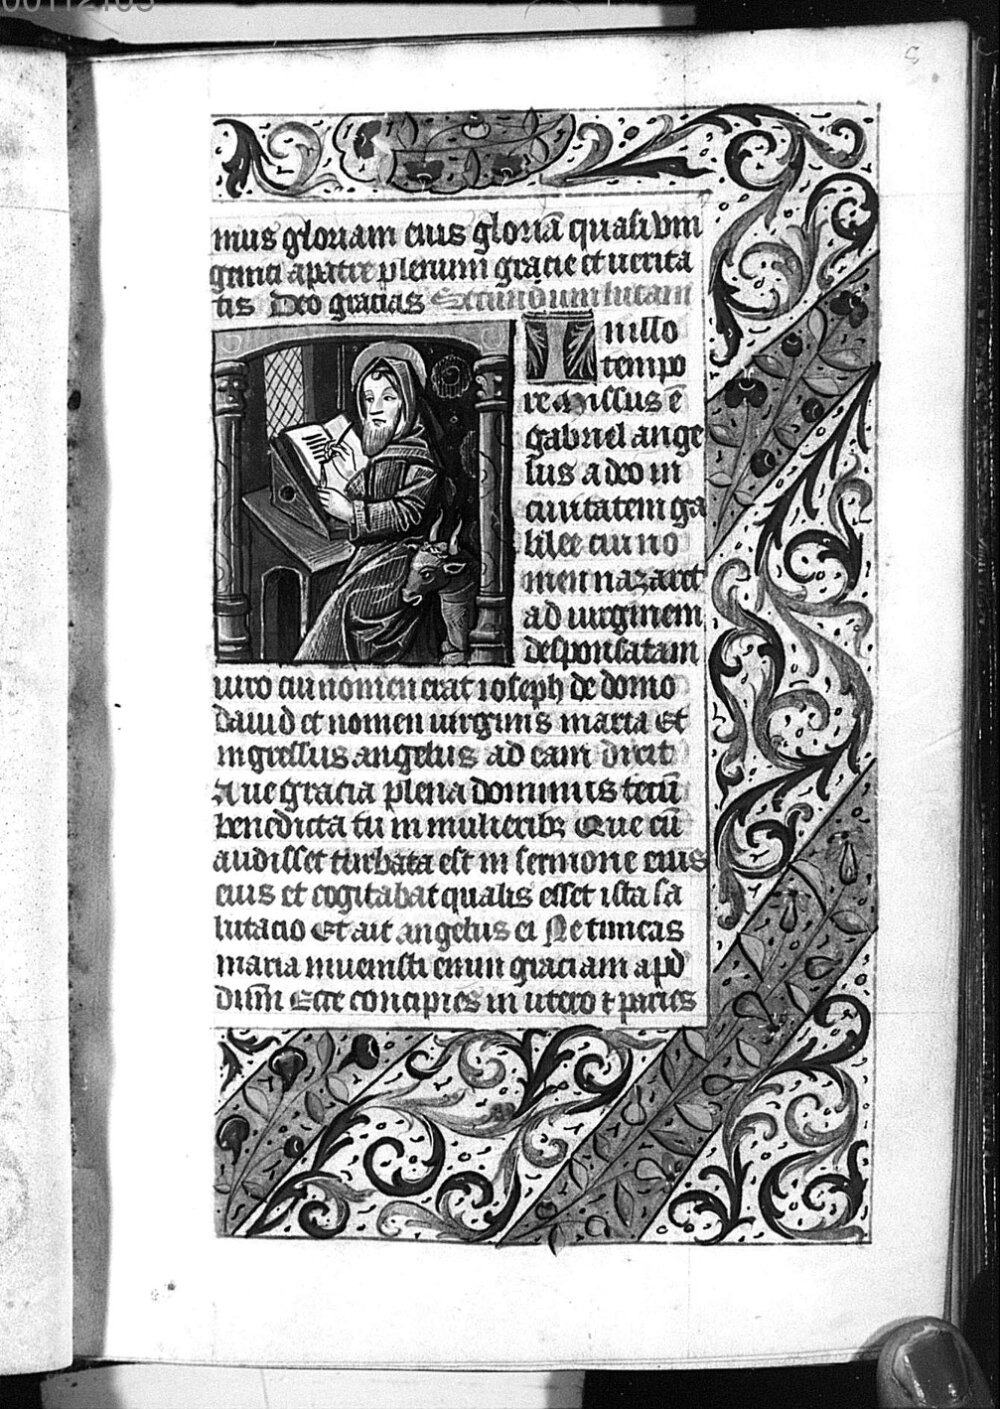 00112105
8
mus gloriam eius gloriā quasi vni
geniti a patre plenum gracie et uerita
tis Deo gracias Secundum lucam
In illo
tempo
re missus ē
gabriel ange
lus a deo in
ciuitatem ga
lilee cui no
men nazaret
ad uirginem
desponsatam
uiro cui nomen erat ioseph de domo
dauid et nomen uirginis maria Et
ingressus angelus ad eam dixit
Aue gracia plena dominus tecū
benedicta tu in mulieribꝫ Que cū
audisset turbata est in sermone eius
eius et cogitabat qualis esset ista sa
lutacio Et ait angelus ei Ne timeas
maria inuenisti enim graciam apd̕
dn̄m Ecce concipies in utero ⁊ paries